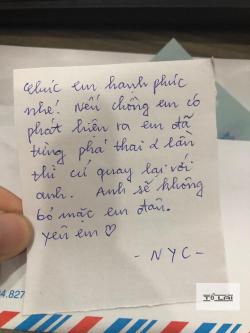 Chúc em hạnh phúc
nhé! Nếu chồng em có
phát hiện ra em đã
từng phá thai 2 lần
thì cứ quay lại với
anh. Anh sẽ không
bỏ mặc em đâu.
yêu em ♡
- NYC -
4.827